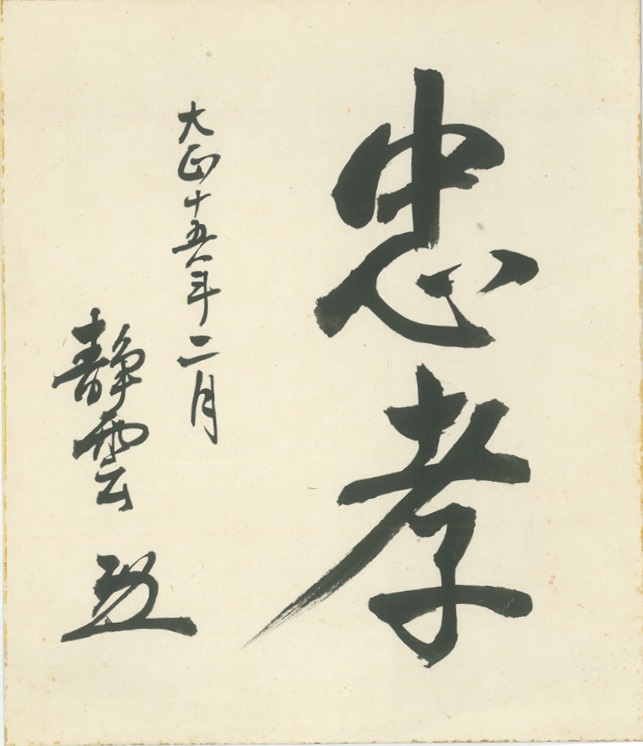 忠孝
大正十五年二月
靜雲